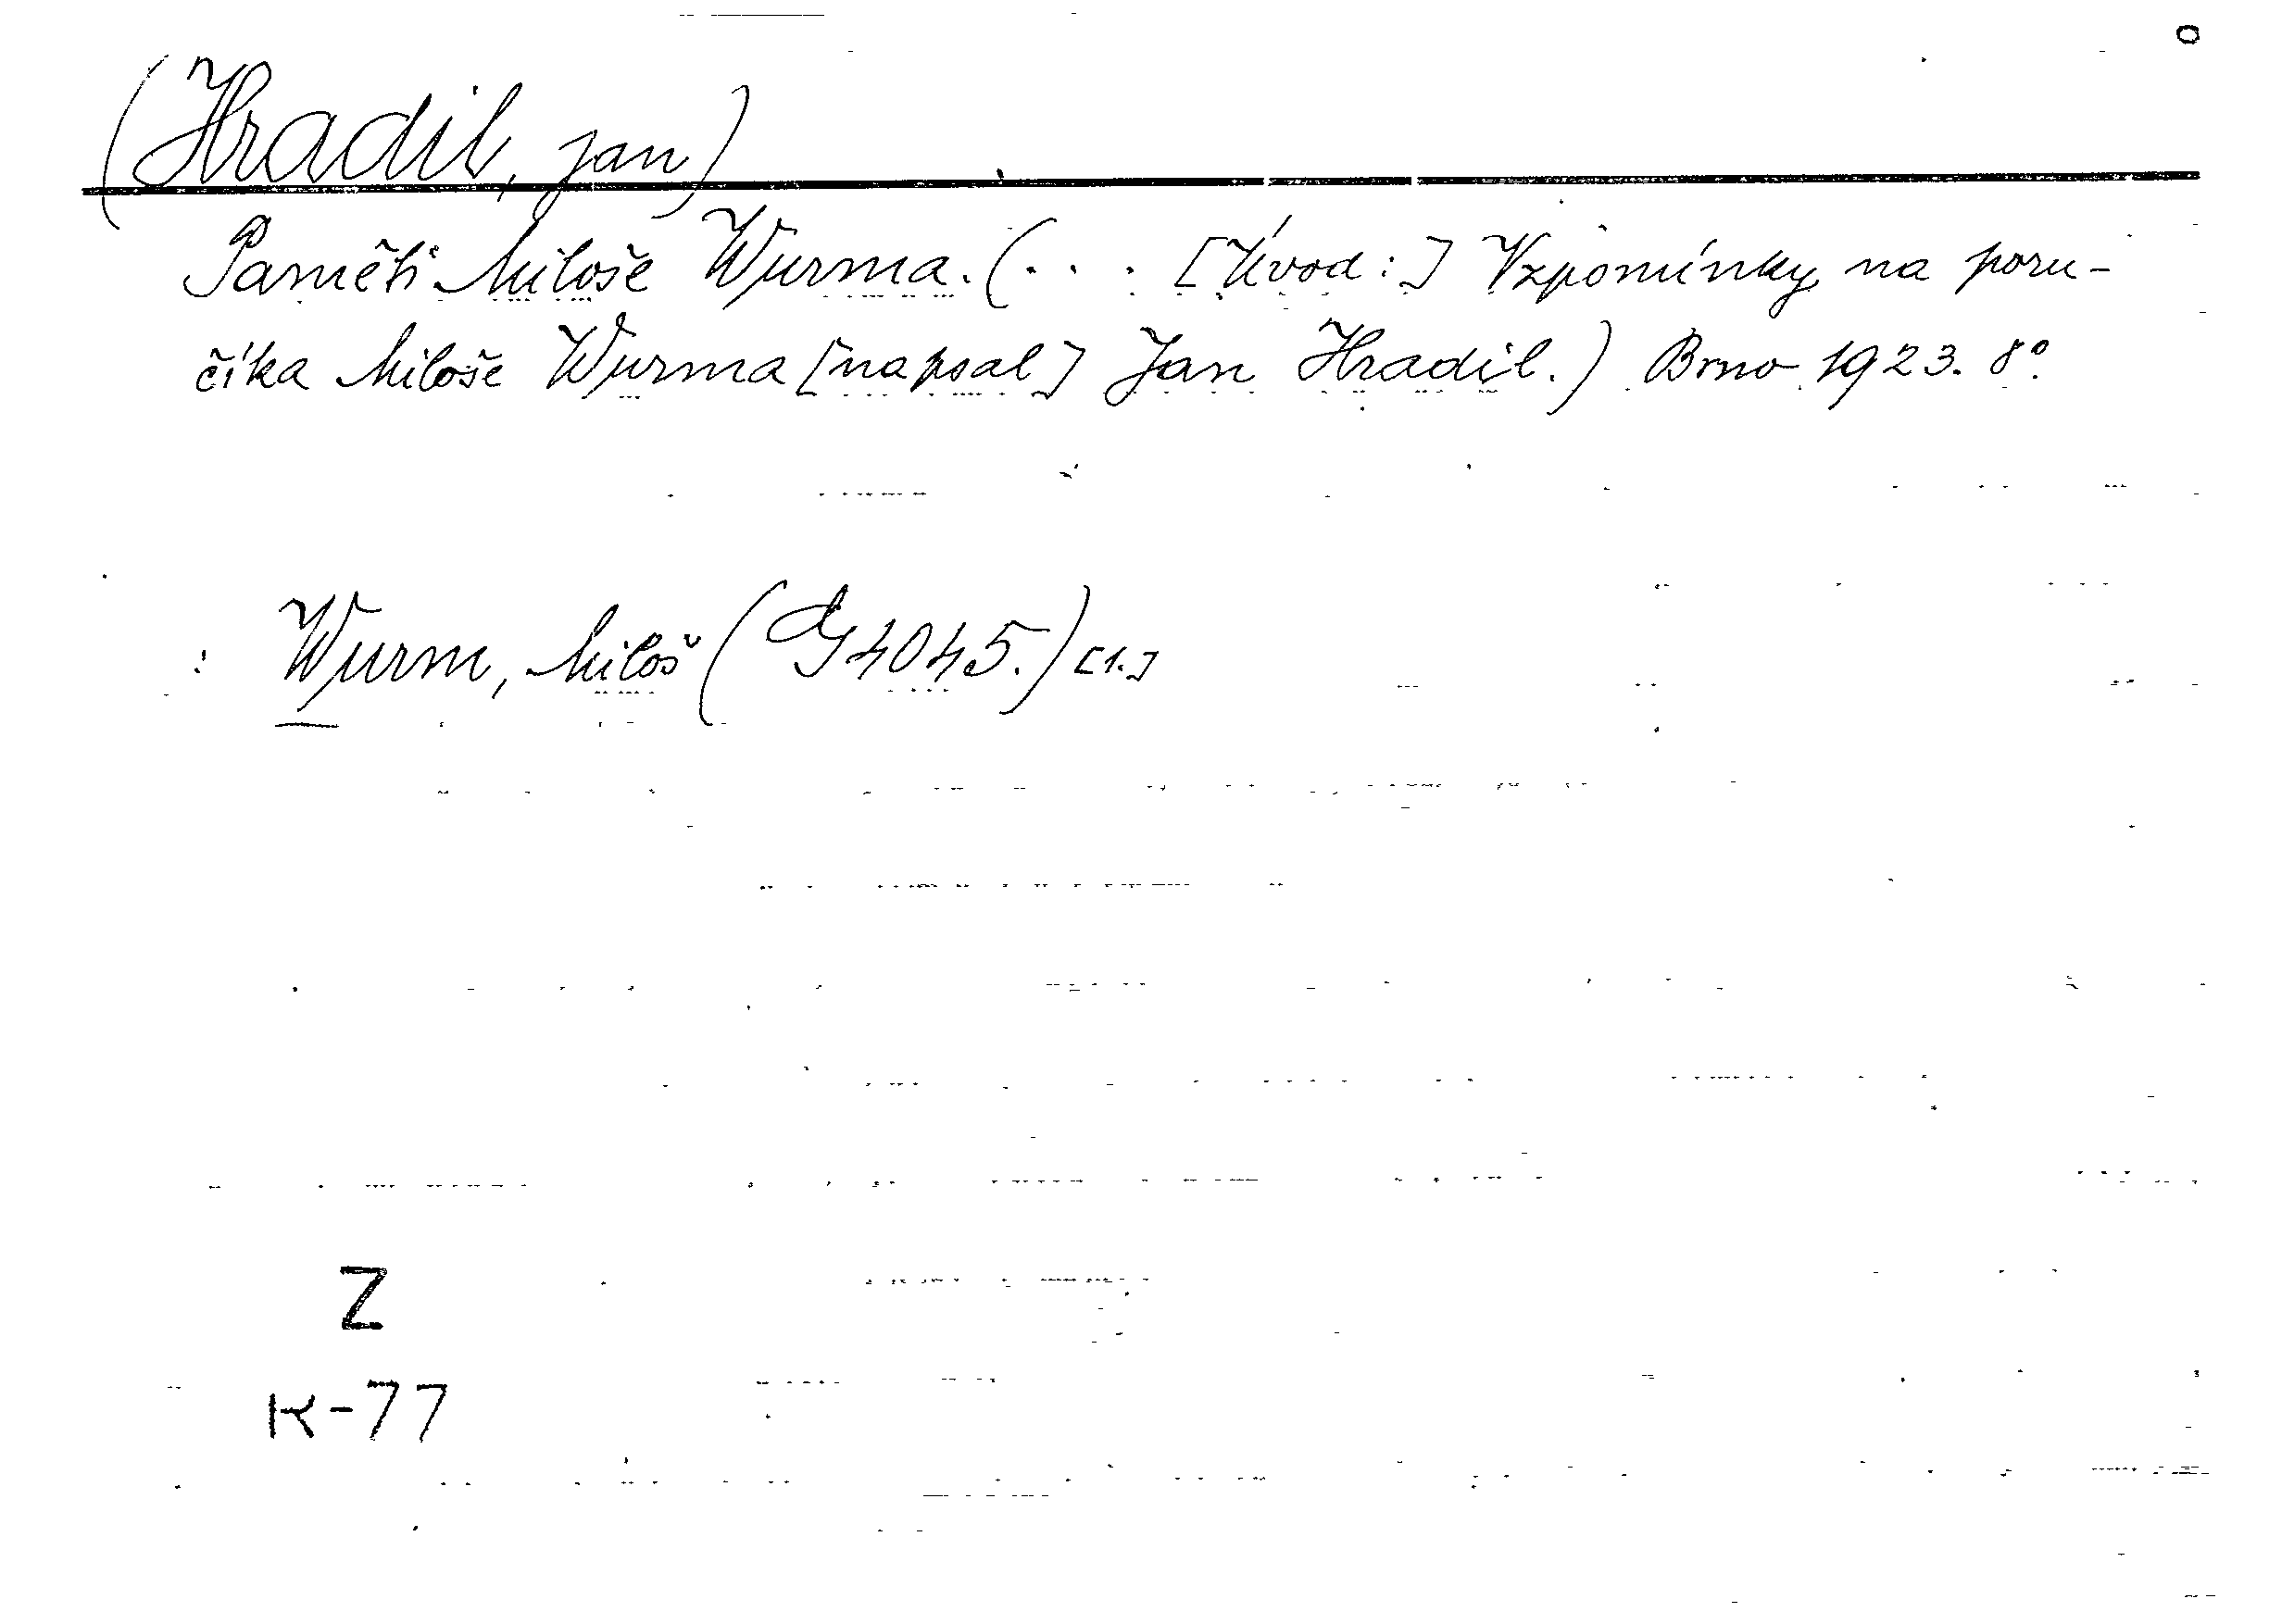 (Hradil, Jan)
Paměti Miloše Wurma. (. . . [Úvod:] Vzpomínky na poru-
číka Miloše Wurma [napsal] Jan Hradil.) Brno 1923. 8°.
: Wurm, Miloš (G 4045.) [1.]
Z
K-77